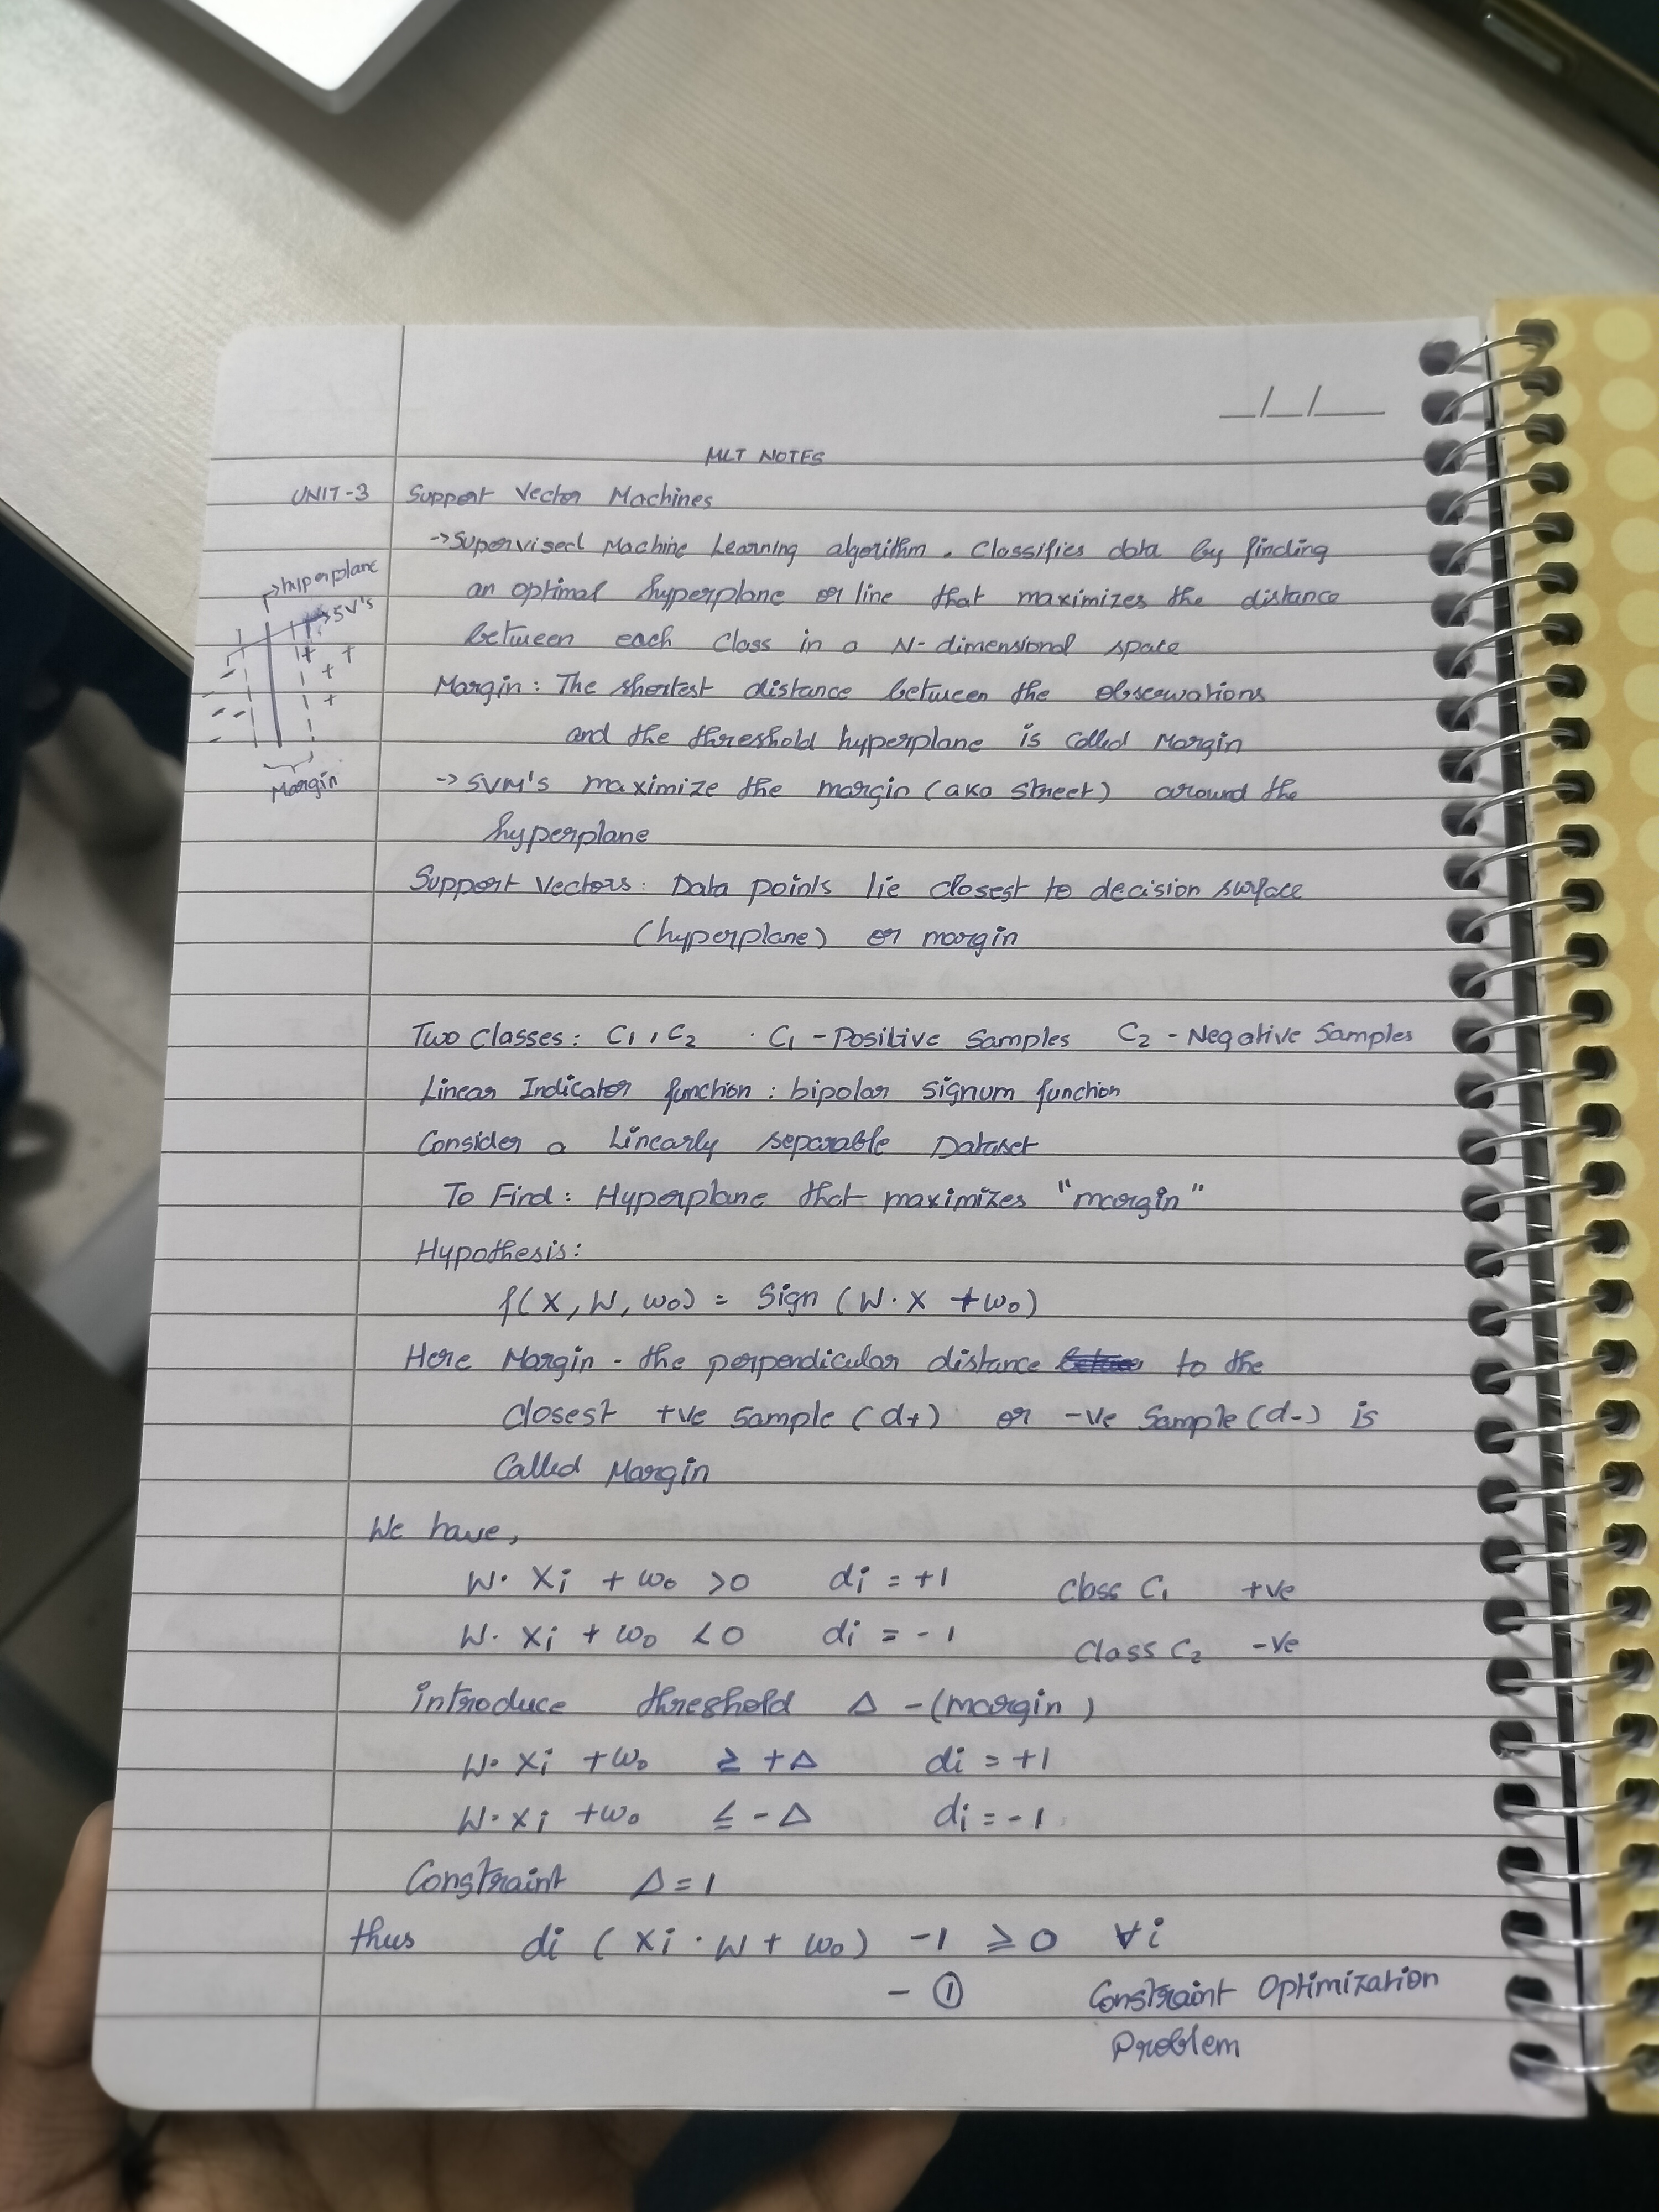 __/__/____
MLT NOTES
UNIT-3 Support Vector Machines
->Supervised Machine Learning algorithm. Classifies data by finding
an optimal hyperplane or line that maximizes the distance
between each class in a N-dimensional space
->hyperplane
->SV's
Margin
Margin: The shortest distance between the observations
and the threshold hyperplane is called Margin
-> SVM's maximize the margin (aka street) around the
hyperplane
Support Vectors: Data points lie closest to decision surface
(hyperplane) or margin
Two Classes: C1, C2 · C1 - Positive Samples C2 - Negative Samples
Linear Indicator function: bipolar signum function
Consider a Linearly separable Dataset
To Find: Hyperplane that maximizes "margin"
Hypothesis:
f(X, W, w0) = Sign (W·X + w0)
Here Margin - the perpendicular distance to the
closest +ve sample (d+) or -ve Sample (d-) is
Called Margin
We have,
W· Xi + w0 >0 di = +1 Class C1 +ve
W· Xi + w0 <0 di = -1 Class C2 -ve
introduce threshold Δ - (margin)
W· Xi + w0 ≥ +Δ di = +1
W· Xi + w0 ≤ -Δ di = -1
Constraint Δ = 1
thus di ( Xi · W + w0) -1 ≥ 0 ∀i
- ① Constraint Optimization
Problem